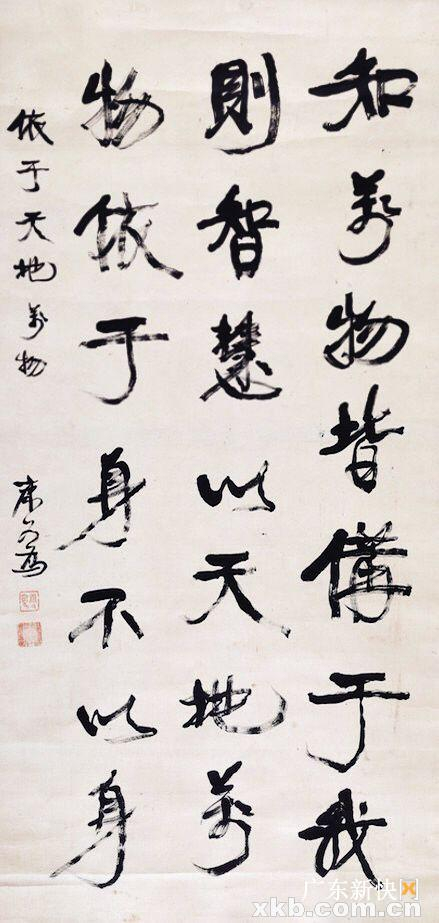 知萬物皆備于我
則智慧以天地萬
物依于身不以身
依于天地萬物
康有為
广东新快网
xkb.com.cn